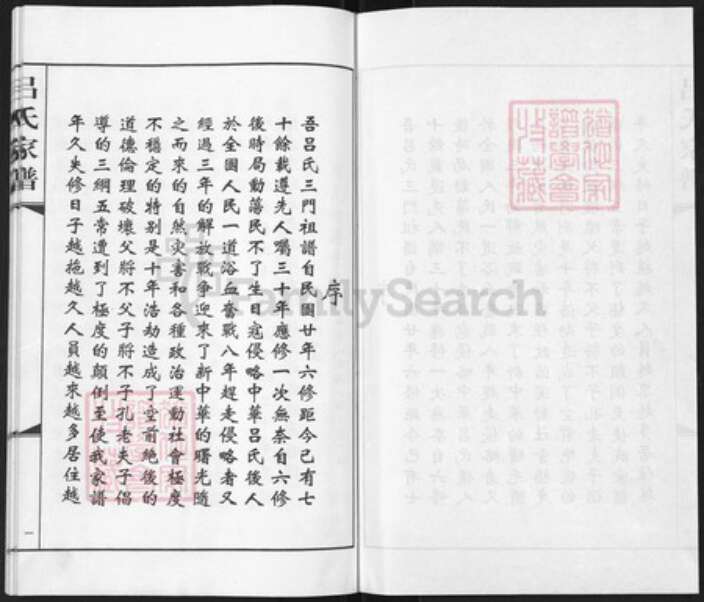 序
吾呂氏三門祖譜自民國廿年六修距今已有七
十餘載遵先人囑三十年應修一次無奈自六修
後時局動蕩民不了生日寇侵略中華呂氏後人
於全國人民一道浴血奮戰八年趕走侵略者又
經過三年的解放戰爭迎來了新中華的曙光隨
之而來的自然災害和各種政治運動社會極度
不穩定的特别是十年浩劫造成了空前絶後的
道德倫理破壞父將不父子將不子孔老夫子倡
導的三綱五常遭到了極度的顛倒至使我家譜
年久失修日子越拖越久人員越來越多居住越
呂氏家譜
一
FamilySearch